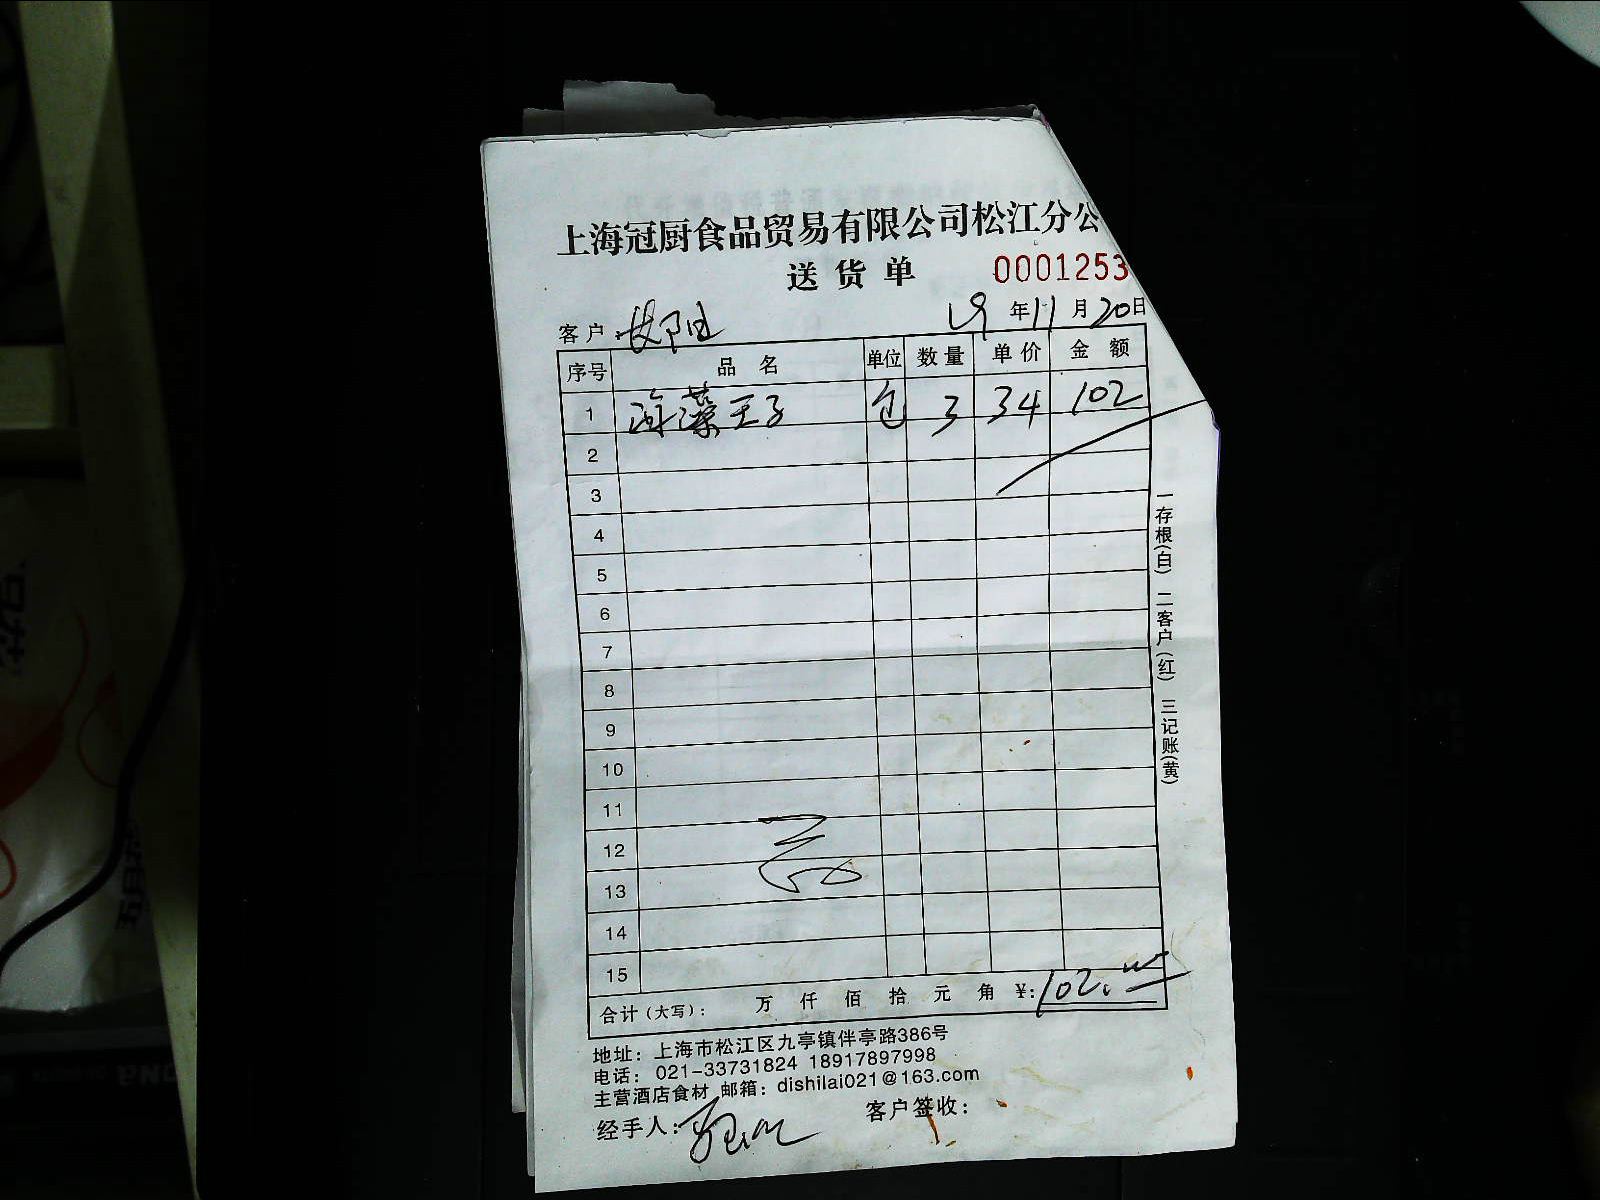 上海冠厨食品贸易有限公司松江分公
送货单 0001253
19年11月20日
客户:
序号 品名 单位 数量 单价 金额
1 海藻王子 包 3 34 102
2
3
4
5
6
7
8
9
10
11
12
13
14
15
合计(大写): 万 仟 佰 拾 元 角 ¥:102.
地址: 上海市松江区九亭镇伴亭路386号
电话: 021-33731824 18917897998
主营酒店食材 邮箱: dishilai021@163.com
经手人: 客户签收:
一存根(白) 二客户(红) 三记账(黄)